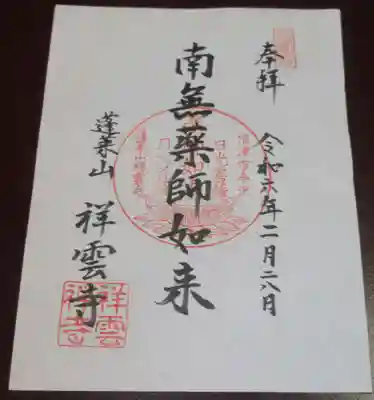 奉拝
令和六年二月二八日
南無薬師如来
蓬莱山 祥雲寺
祥雲
禅寺